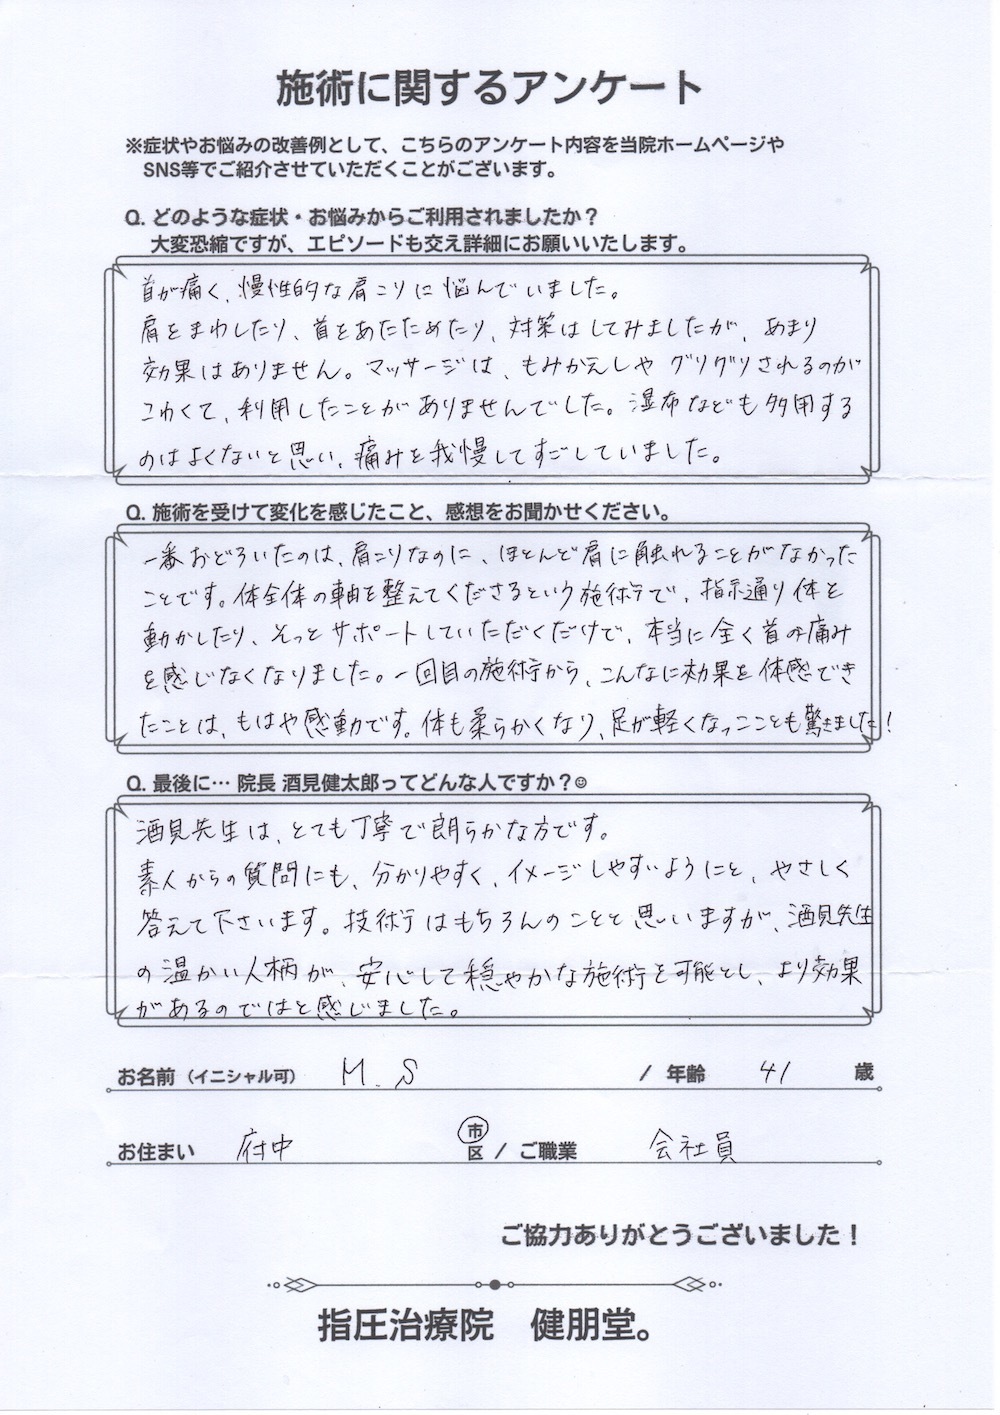 施術に関するアンケート
※症状やお悩みの改善例として、こちらのアンケート内容を当院ホームページや
SNS等でご紹介させていただくことがございます。
Q. どのような症状・お悩みからご利用されましたか？
大変恐縮ですが、エピソードも交え詳細にお願いいたします。
首が痛く、慢性的な肩こりに悩んでいました。
肩をまわしたり、首をあたためたり、対策はしてみましたが、あまり
効果はありません。マッサージは、もみかえしや グリグリされるのが
こわくて、利用したことがありませんでした。湿布なども多用する
のはよくないと思い、痛みを我慢してすごしていました。
Q. 施術を受けて変化を感じたこと、感想をお聞かせください。
一番おどろいたのは、肩こりなのに、ほとんど肩に触れることがなかった
ことです。体全体の軸を整えてくださるという施術で、指示通り体を
動かしたり、そっとサポートしていただくだけで、本当に全く首の痛み
を感じなくなりました。一回目の施術から、こんなに効果を体感でき
たことは、もはや感動です。体も柔らかくなり、足が軽くなっこことも驚きました！
Q. 最後に… 院長 酒見健太郎ってどんな人ですか？☺
酒見先生は、とても丁寧で朗らかな方です。
素人からの質問にも、分かりやすく、イメージしやすいようにと、やさしく
答えて下さいます。技術はもちろんのことと思いますが、酒見先生
の温かい人柄が、安心して穏やかな施術を可能とし、より効果
があるのではと感じました。
お名前（イニシャル可） M.S / 年齢 41 歳
お住まい 府中 市 区 / ご職業 会社員
ご協力ありがとうございました！
指圧治療院 健朋堂。